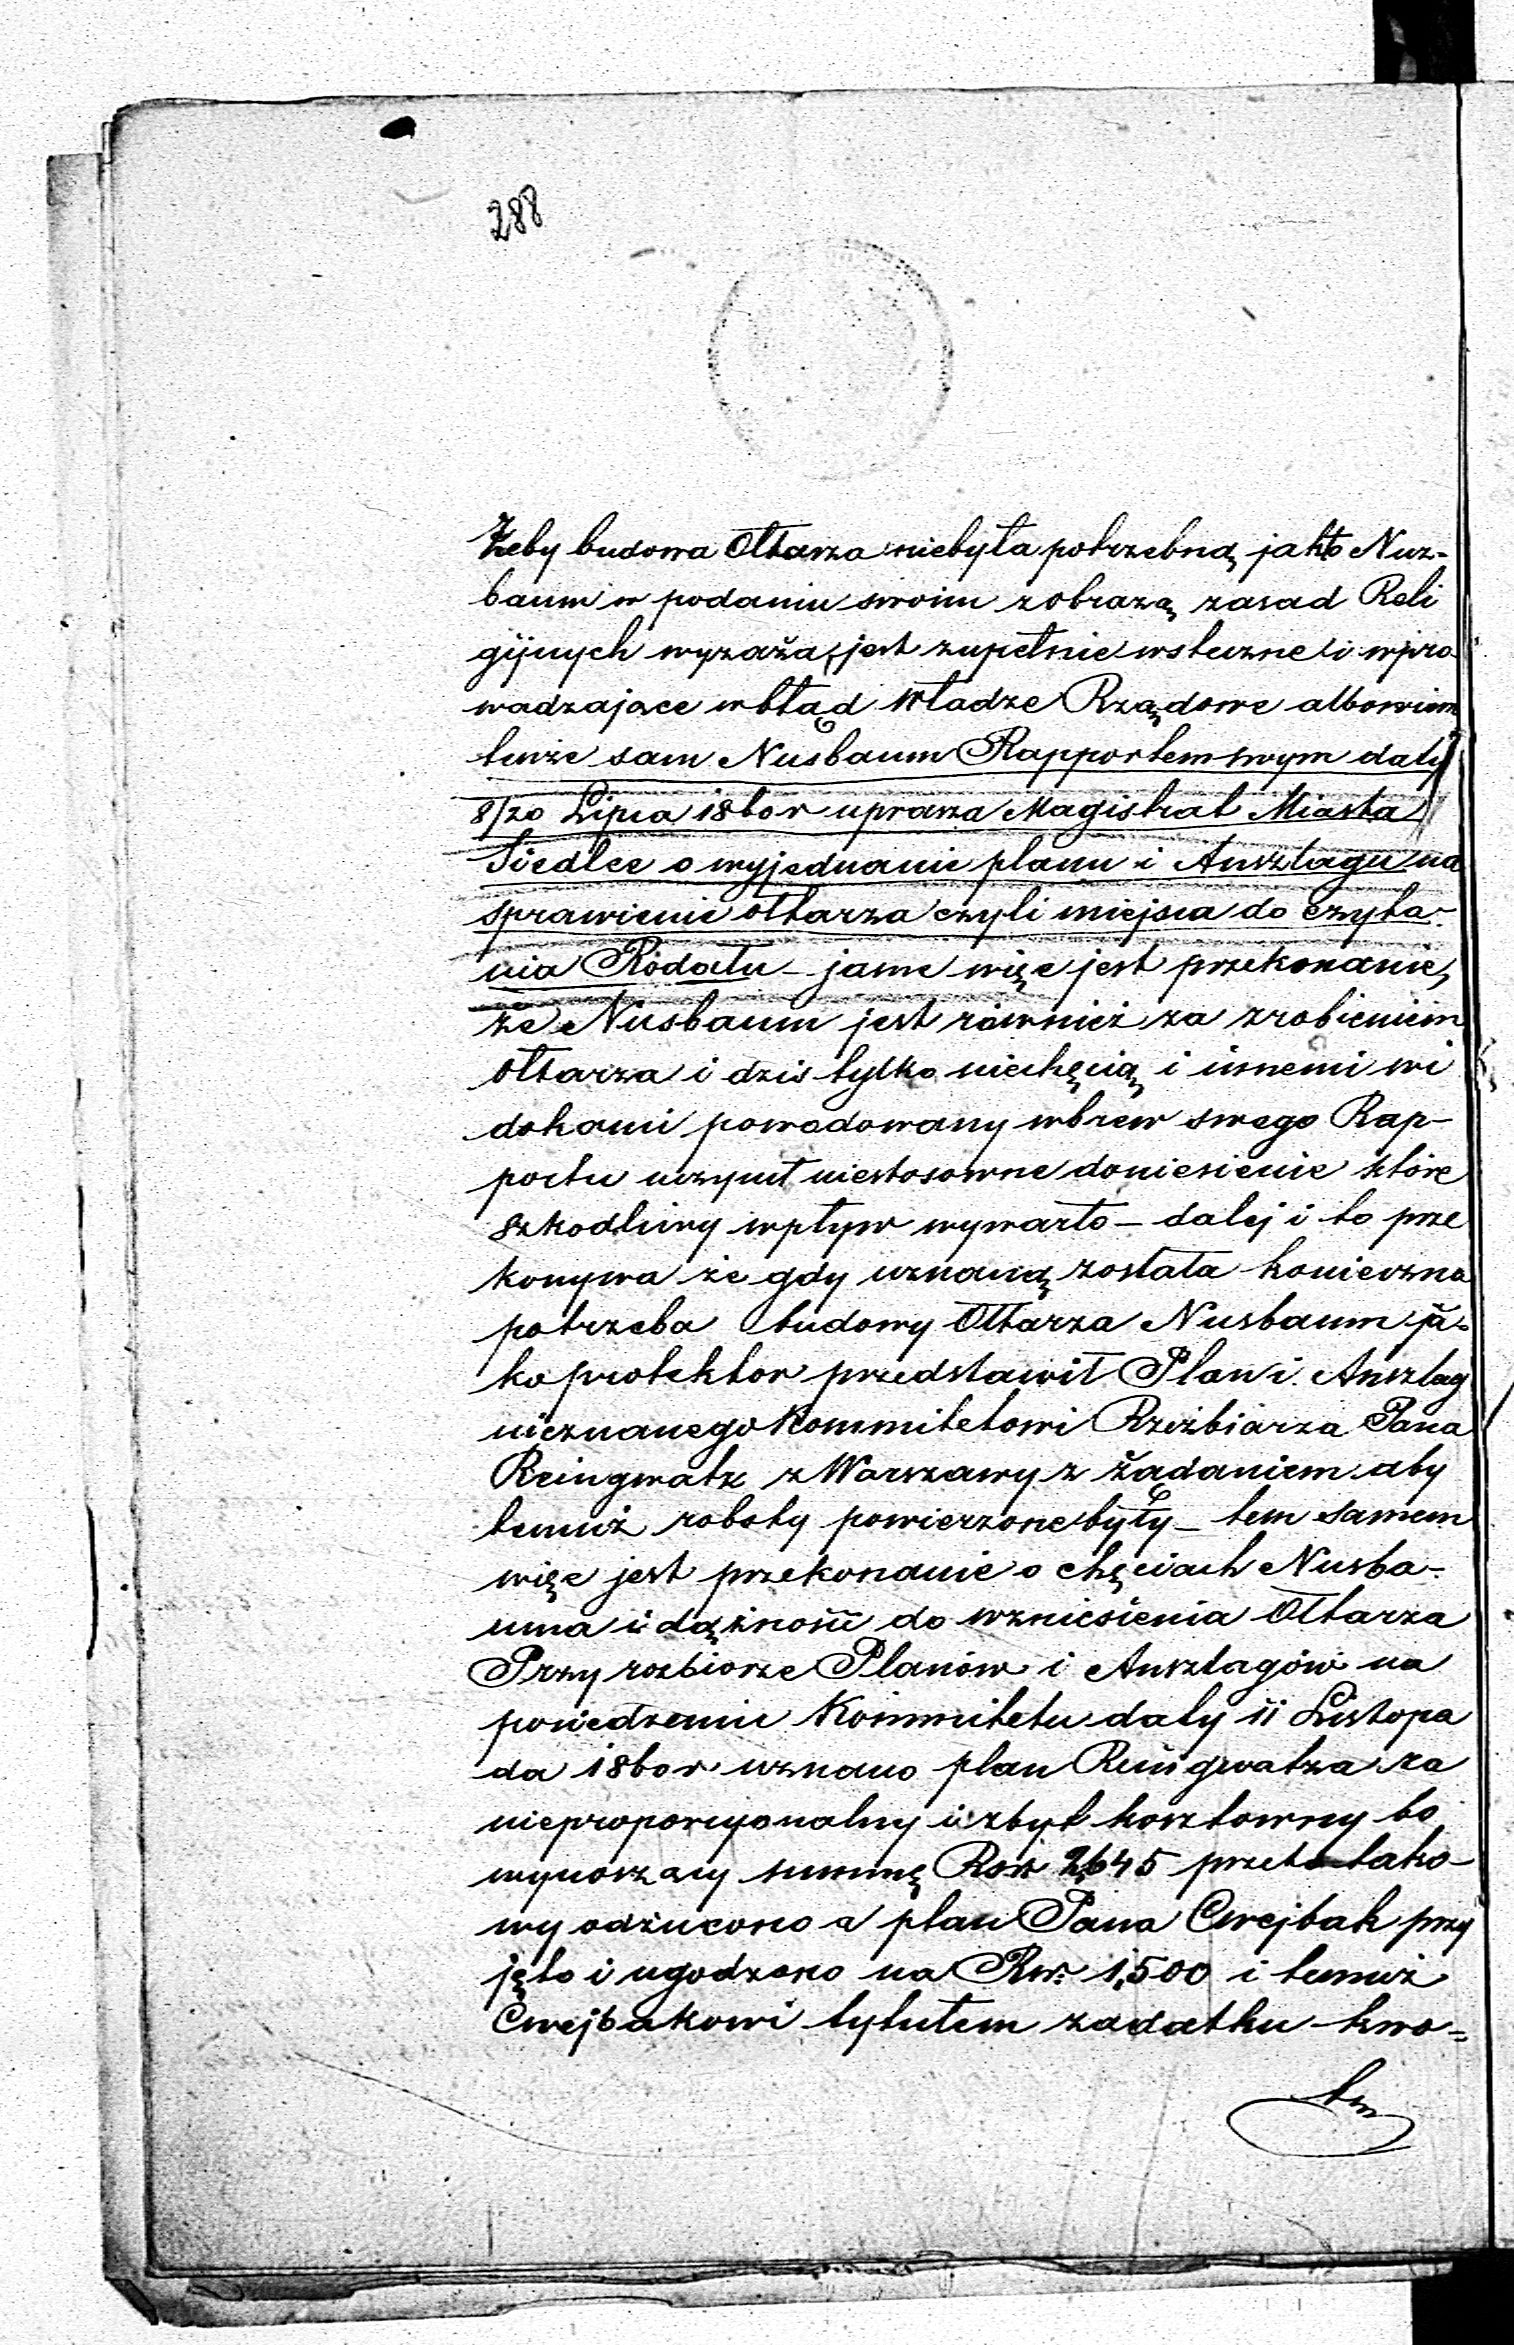 288
Żeby budowa Ołtarza niebyła potrzebną jak to Nuz-
baum w podaniu swoim z obrazą zasad Reli
gijnych wyraża, jest zupełnie wsteczne i wpro
wadzające w błąd Władze Rządowe albowiem
tenże sam Nusbaum Rapportem swym daty
8/20 Lipca 1860 r uprasza Magistrat Miasta
Siedlce o wyjednanie planu i Anszlagu na
sprawienie ołtarza czyli miejsca do czyta-
nia Rodału – jasne więc jest przekonanie,
że Nusbaum jest również za zrobieniem
ołtarza i dziś tylko niechęcią i innemi wi
dokami powodowany wbrew swego Rap-
portu uczynił niestosowne doniesienie które
szkodliwy wpływ wywarło – dalej i to prze
konywa że gdy uznaną została konieczna
potrzeba budowy Ołtarza Nusbaum ja-
ko protektor przedstawił Plan i Anszlag
nieznanego Kommitetowi Rzeźbiarza Pana
Reingwatz z Warszawy z żądaniem aby
temuż roboty powierzone były – tem samem
więc jest przekonanie o chęciach Nusba-
uma i dążność do wzniesienia Ołtarza
Przy rozbiorze Planów i Anszlagów na
posiedzeniu Kommitetu daty 11 Listopa
da 1860 r uznano plan Reingwatza za
nieproporcyonalny i zbyt kosztowny bo
wynoszący summę Rsr 2,645 przeto tako-
wy odrzucono a plan Pana Cwejbak przy
jęto i ugodzono na Rsr. 1,500 i temuż
Cwejbakowi tytułem zadatku kwo=